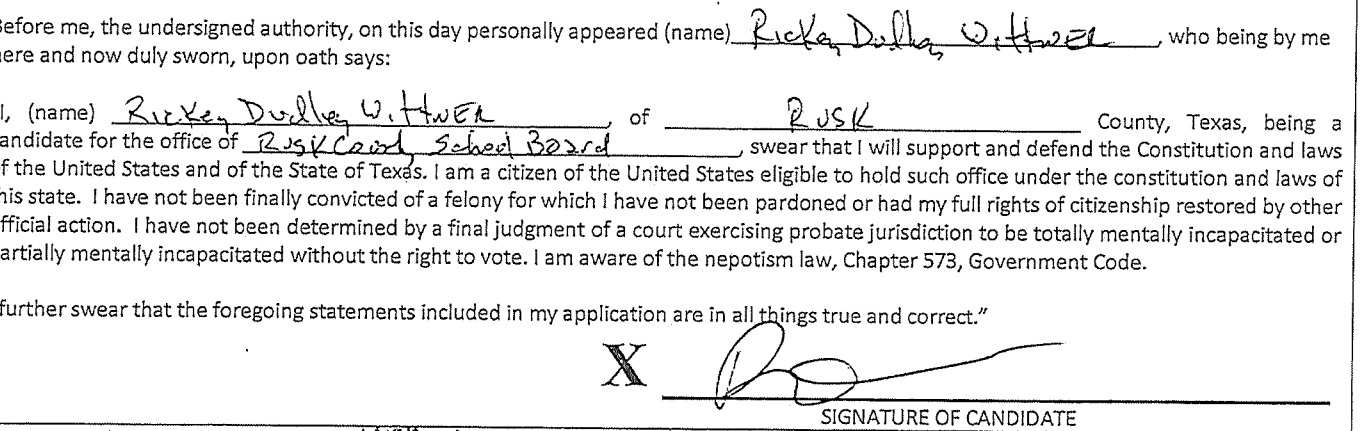 efore me, the undersigned authority, on this day personally appeared (name) Rickey Dudley Wittwer, who being by me
ere and now duly sworn, upon oath says:
I, (name) Rickey Dudley Wittwer, of Rusk County, Texas, being a
andidate for the office of Rusk County School Board, swear that I will support and defend the Constitution and laws
f the United States and of the State of Texas. I am a citizen of the United States eligible to hold such office under the constitution and laws of
his state. I have not been finally convicted of a felony for which I have not been pardoned or had my full rights of citizenship restored by other
fficial action. I have not been determined by a final judgment of a court exercising probate jurisdiction to be totally mentally incapacitated or
artially mentally incapacitated without the right to vote. I am aware of the nepotism law, Chapter 573, Government Code.
further swear that the foregoing statements included in my application are in all things true and correct."
X
SIGNATURE OF CANDIDATE